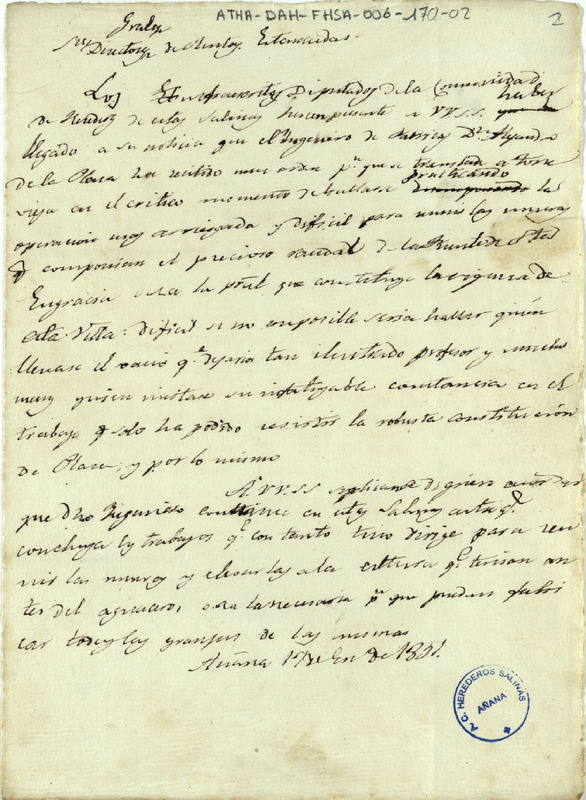 ATHA-DAH-FHSA-006-170-02
2
Grales
Sres Directores de Rentas Estancadas
Los Infrascritos Diputados de la Comunidad
de Herederos de estas Salinas hacen presente a VV.SS. haber
llegado a su noticia que el Ingeniero de fabricas Dn Alejandro
de la Plaza ha recibido una orden pa que se translade a torre
vieja en el critico momento de hallarse practicando la
operacion mas arriesgada y dificil para unir las mueras
q componian el precioso raudal de la fuente de Sta
Engracia o sea la pral que constituye la riqueza de
esta Villa: dificil si no imposible seria hallar quien
llenase el vacio qe dejaria tan ilustrado profesor y mucho
mas quien imitase su infatigable constancia en el
trabajo q solo ha podido resistir la robusta constitución
de Plaza, y por lo mismo
A VV.SS. suplican se dignen acordar
que dho Ingeniero continue en estas Salinas hasta qe
concluya los trabajos qe con tanto tino dirige para reu
nir las mueras y elevarlas a la altura qe tenian an
tes del aguacero, o sea la necesaria pa que puedan fabri
car todas las granjas de las mismas
Añana 17 de Eno de 1851.
A. C. HEREDEROS SALINAS
AÑANA